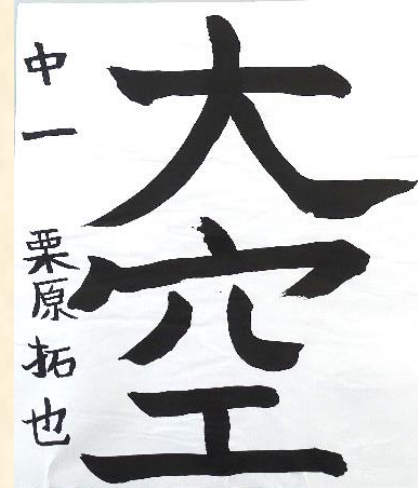 大空
中一 栗原拓也